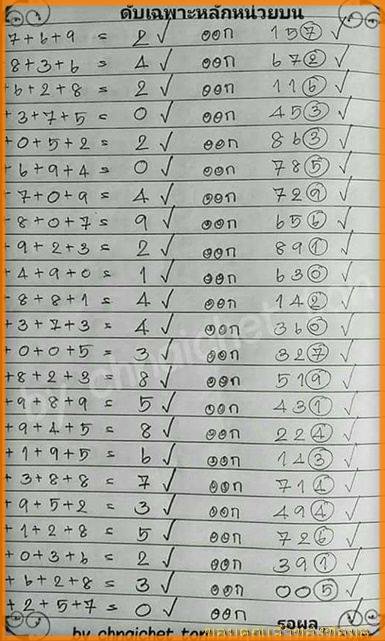 ดับเฉพาะหลักหน่วยบน
7+6+9 = 2 ✓ ออก 157 ✓
8+3+6 = 4 ✓ ออก 672 ✓
+6+2+8 = 2 ✓ ออก 116 ✓
+3+7+5 = 0 ✓ ออก 453 ✓
+0+5+2 = 2 ✓ ออก 863 ✓
+6+9+4 = 0 ✓ ออก 785 ✓
-7+0+9 = 4 ✓ ออก 729 ✓
-8+0+7 = 9 ✓ ออก 656 ✓
-9+2+3 = 2 ✓ ออก 891 ✓
+4+9+0 = 1 ✓ ออก 630 ✓
-8+8+1 = 4 ✓ ออก 142 ✓
+3+7+3 = 4 ✓ ออก 360 ✓
+0+0+5 = 3 ✓ ออก 327 ✓
+8+2+3 = 8 ✓ ออก 519 ✓
+9+8+9 = 5 ✓ ออก 431 ✓
+9+4+5 = 8 ✓ ออก 224 ✓
+1+9+5 = 6 ✓ ออก 143 ✓
+3+8+8 = 7 ✓ ออก 714 ✓
+9+5+2 = 3 ✓ ออก 494 ✓
+1+2+8 = 5 ✓ ออก 726 ✓
+0+3+6 = 2 ✓ ออก 391 ✓
+6+2+8 = 3 ✓ ออก 005 ✓
+2+5+7 = 0 ✓ ออก
รอผล
by chpaichet ton